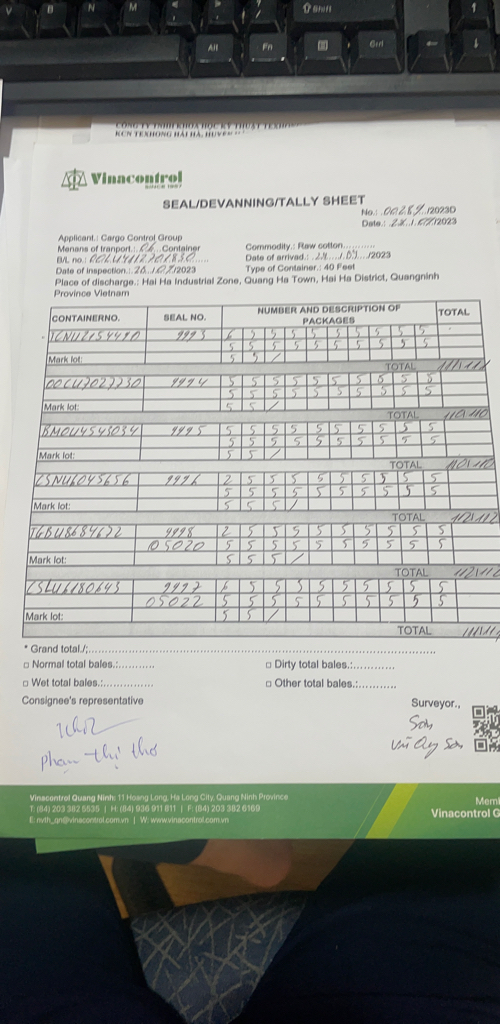 V B N M < > ? / ⇧ Shift ↑
Alt Fn Ctrl ← ↓
CÔNG TY TNHH KHOA HỌC KỸ THUẬT
KCN TEXHONG HẢI HÀ, HUYỆN
Vinacontrol
SINCE 1957
SEAL/DEVANNING/TALLY SHEET
No.: 00289 /2023D
Date.: /2023
Applicant.: Cargo Control Group
Menans of tranport.: 06 Container
Commodity.: Raw cotton
B/L no.:
Date of arrived.: /2023
Date of inspection.: 26 / 07/2023
Type of Container.: 40 Feet
Place of discharge.: Hai Ha Industrial Zone, Quang Ha Town, Hai Ha District, Quangninh
Province Vietnam
CONTAINERNO. SEAL NO. NUMBER AND DESCRIPTION OF PACKAGES TOTAL
9993 6 5 5 5 5 5 5 5 5 5
5 5 5 5 5 5 5 5 5 5
Mark lot: 5 5 /
TOTAL 111/111
OOCU7027230 9994 5 5 5 5 5 5 5 5 5 5
5 5 5 5 5 5 5 5 5 5
Mark lot: 5 5 /
TOTAL 110/110
BMOU4543034 9995 5 5 5 5 5 5 5 5 5 5
5 5 5 5 5 5 5 5 5 5
Mark lot: 5 5 /
TOTAL 110/110
CSNU6045656 9996 2 5 5 5 5 5 5 5 5 5
5 5 5 5 5 5 5 5 5 5
Mark lot: 5 5 5 /
TOTAL 112/112
TGBU8684622 9998 2 5 5 5 5 5 5 5 5 5
05020 5 5 5 5 5 5 5 5 5 5
Mark lot: 5 5 5 /
TOTAL 112/112
CSLU6180643 9997 6 5 5 5 5 5 5 5 5 5
05022 5 5 5 5 5 5 5 5 5 5
Mark lot: 5 5 /
TOTAL 111/111
* Grand total./:
□ Normal total bales.:
□ Dirty total bales.:
□ Wet total bales.:
□ Other total bales.:
Consignee's representative
Surveyor.,
Sơn
phạm thị thơ
Vũ Sơn
Vinacontrol Quang Ninh: 11 Hoang Long, Ha Long City, Quang Ninh Province
T: (84) 203 382 5635 | H: (84) 936 911 811 | F: (84) 203 382 6169
E: nvth_qn@vinacontrol.com.vn | W: www.vinacontrol.com.vn
Memb
Vinacontrol G